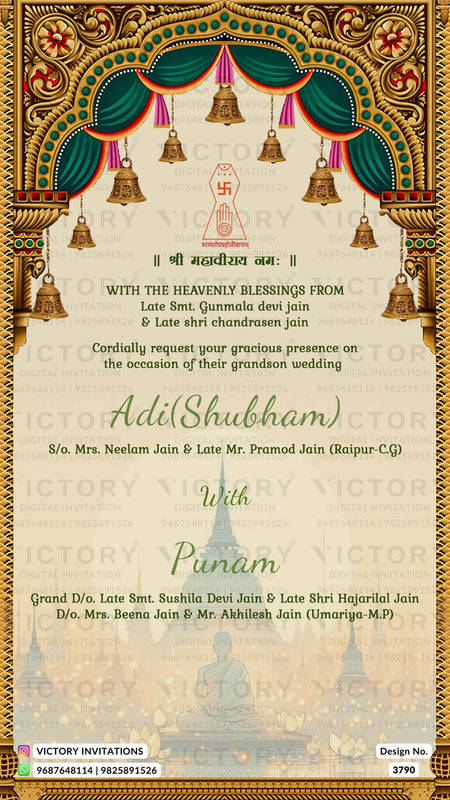 परस्परोपग्रहोजीवानाम्
॥ श्री महावीराय नमः ॥
WITH THE HEAVENLY BLESSINGS FROM
Late Smt. Gunmala devi jain
& Late shri chandrasen jain
Cordially request your gracious presence on
the occasion of their grandson wedding
Adi(Shubham)
S/o. Mrs. Neelam Jain & Late Mr. Pramod Jain (Raipur-C.G)
With
Punam
Grand D/o. Late Smt. Sushila Devi Jain & Late Shri Hajarilal Jain
D/o. Mrs. Beena Jain & Mr. Akhilesh Jain (Umariya-M.P)
VICTORY INVITATIONS
9687648114 | 9825891526
Design No.
3790
VICTORY
DIGITAL INVITATION
9687648114 | 9825891526